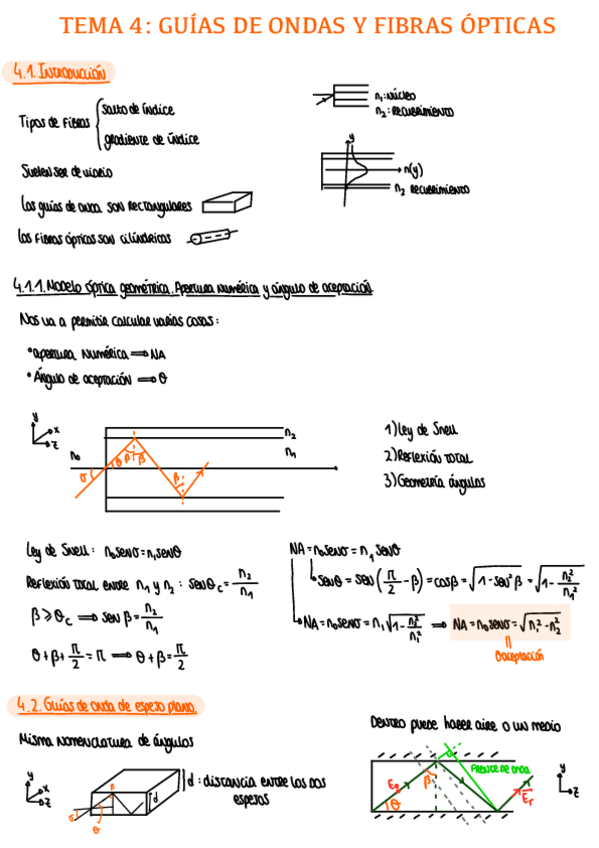 TEMA 4: GUÍAS DE ONDAS Y FIBRAS ÓPTICAS
4.1. Introducción
Tipos de fibras { salto de índice
gradiente de índice
n₁: núcleo
n₂: recubrimiento
Suelen ser de vidrio
y
n(y)
n₂ recubrimiento
Las guías de onda son rectangulares
Las fibras ópticas son cilíndricas
4.1.1. Modelo óptica geométrica. Apertura numérica y ángulo de aceptación
Nos va a permitir calcular varias cosas:
• apertura numérica ⟹ NA
• Ángulo de aceptación ⟹ θ
y
x
z
n₀
σ
θ β β
β
n₂
n₁
1) Ley de Snell
2) Reflexión total
3) Geometría ángulos
Ley de Snell: n₀senσ = n₁senθ
Reflexión total entre n₁ y n₂: senθc = n₂/n₁
β ≥ θc ⟹ sen β = n₂/n₁
θ + β + π/2 = π ⟹ θ + β = π/2
NA = n₀senσ = n₁ senθ
senθ = sen(π/2 - β) = cosβ = √(1 - sen²β) = √(1 - n₂²/n₁²)
NA = n₀senσ = n₁√(1 - n₂²/n₁²) ⟹ NA = n₀senσ = √(n₁² - n₂²)
θaceptación
4.2. Guías de onda de espejo plano
Misma nomenclatura de ángulos
Dentro puede haber aire o un medio
y
x
z
β
θ
d
d: distancia entre los dos
espejos
β
θ
Frente de onda
Er
y
z